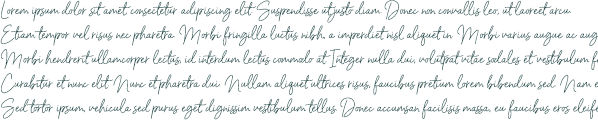 Lorem ipsum dolor sit amet, consectetur adipiscing elit. Suspendisse ut justo diam. Donec non convallis leo, ut laoreet arcu.
Etiam tempor vel risus nec pharetra. Morbi fringilla luctus nibh, a imperdiet nisl aliquet in. Morbi varius augue ac aug
Morbi hendrerit ullamcorper lectus, id interdum lectus commodo at. Integer nulla dui, volutpat vitae sodales et, vestibulum f
Curabitur et nunc elit. Nunc et pharetra dui. Nullam aliquet ultrices risus, faucibus pretium lorem bibendum sed. Nam e
Sed tortor ipsum, vehicula sed purus eget, dignissim vestibulum tellus. Donec accumsan facilisis massa, eu faucibus eros eleife